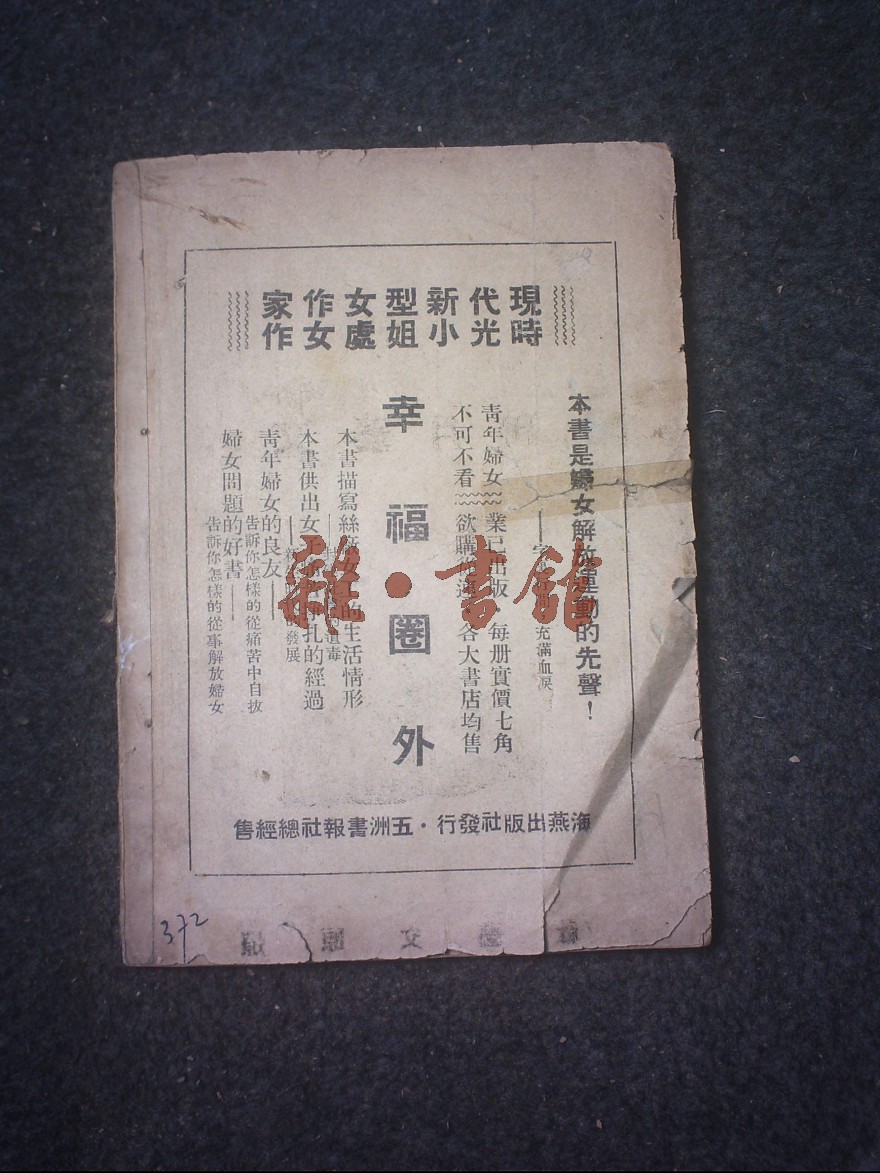 現代新型女作家
時光小姐處女作
本書是婦女解放運動的先聲！
——字 充滿血淚
青年婦女 業已出版 每册實價七角
不可不看 欲購 各大書店均售
幸福圈外
本書描寫絲 女工的生活情形
遺毒
本書供出女子 扎的經過
發展
青年婦女的良友——
告訴你怎樣的從痛苦中自拔
婦女問題的好書——
告訴你怎樣的從事解放婦女
海燕出版社發行・五洲書報社總經售
372
雜・書館